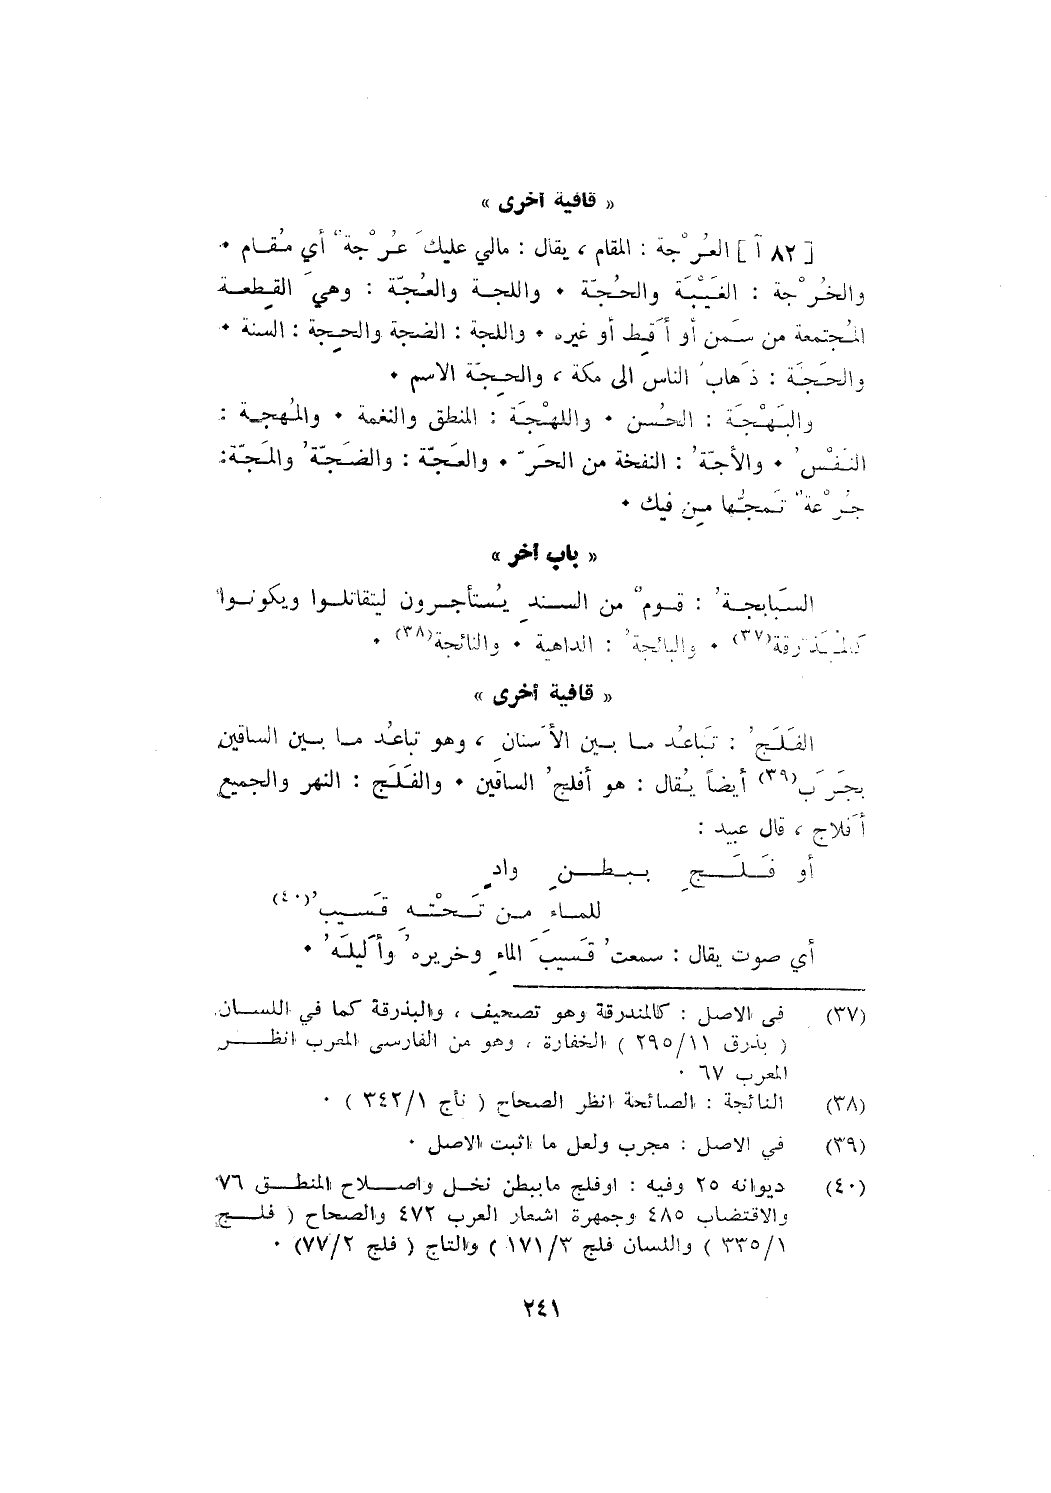 « قافية أخرى »
[ ٨٢ آ ] العُرْجة : المقام ، يقال : مالي عليكَ عُرْجةٌ أي مُقام •
والخُرْجة : الغَيْبَة والحُجَّة • واللجة والعُجّة : وهيَ القِطعة
المُجتمعة من سَمن أو أَقِط أو غيره • واللجة : الضجة والحِجة : السنة •
والحَجَّة : ذَهابُ الناس الى مكة ، والحِجَّة الاسم •
والبَهْجَة : الحُسن • واللهْجَة : المنطق والنغمة • والمُهجة :
النَفْسُ • والأجّةُ : النفخة من الحَرّ • والعَجَّة : والضَجَّةُ والمَجّة :
جُرْعةٌ تَمجُّها مِن فيك •
« باب آخر »
السَبابجةُ : قومٌ من السندِ يُستأجرون ليتقاتلوا ويكونوا
كالمُبَذرقة(٣٧) • والبائجةُ : الداهية • والنائجة(٣٨) •
« قافية أخرى »
الفَلَجُ : تَباعُد ما بين الأَسنانِ ، وهو تباعُد ما بين الساقينِ
بجَرَبَ(٣٩) أيضاً يُقال : هو أفلجُ الساقين • والفَلَج : النهر والجميع
أَفلاج ، قال عبيد :
أو فَلَجٍ ببطنِ وادٍ
للماءِ مِن تَحْتهِ قَسيبُ(٤٠)
أي صوت يقال : سمعتُ قَسيبَ الماءِ وخريرهُ وأَليلَهُ •
(٣٧) في الاصل : كالمندرقة وهو تصحيف ، والبذرقة كما في اللسان
( بذرق ١١/٢٩٥ ) الخفارة ، وهو من الفارسي المعرب انظر
المعرب ٦٧ •
(٣٨) النائجة : الصائحة انظر الصحاح ( نأج ١/٣٤٢ ) •
(٣٩) في الاصل : مجرب ولعل ما اثبت الاصل •
(٤٠) ديوانه ٢٥ وفيه : اوفلج مابيطن نخل واصلاح المنطق ٧٦
والاقتضاب ٤٨٥ وجمهرة اشعار العرب ٤٧٢ والصحاح ( فلج
١/٣٣٥ ) واللسان فلج ٣/١٧١ ) والتاج ( فلج ٢/٧٧) •
٢٤١